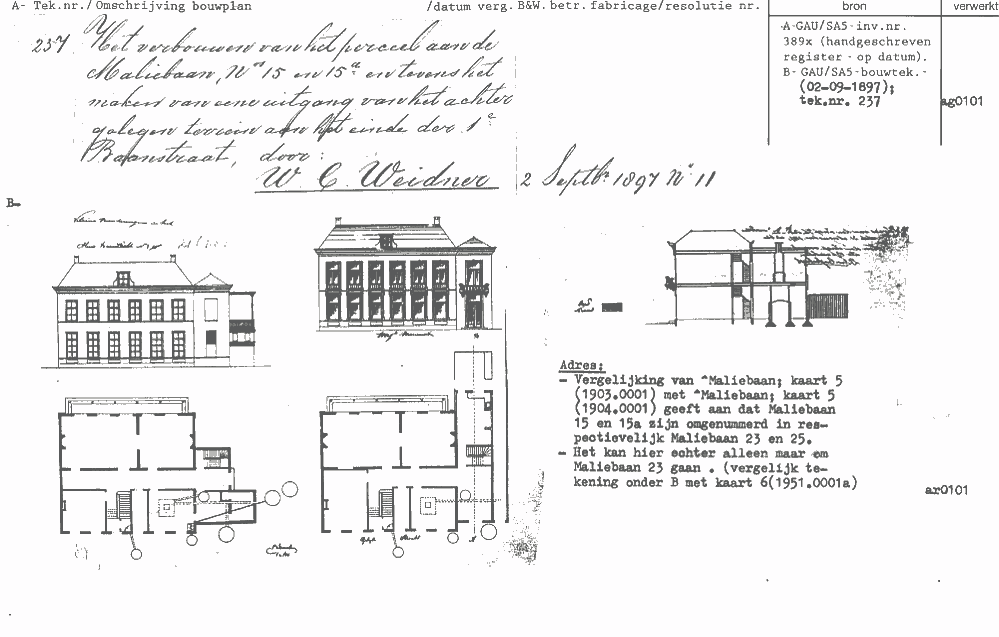 A- Tek.nr./ Omschrijving bouwplan /datum verg. B&W. betr. fabricage/resolutie nr. bron verwerkt
237 Het verbouwen van het perceel aan de
Maliebaan, Nos 15 en 15a en tevens het
maken van eene uitgang van het achter
gelegen terrein aan het einde der 1e
Baanstraat, door:
W. C. Weidner 2 Septbr 1897 No 11
A-GAU/SA5-inv.nr.
389x (handgeschreven
register - op datum).
B- GAU/SA5-bouwtek.-
(02-09-1897);
tek.nr. 237
ag0101
B-
Adres:
- Vergelijking van ^Maliebaan; kaart 5
(1903.0001) met ^Maliebaan; kaart 5
(1904.0001) geeft aan dat Maliebaan
15 en 15a zijn omgenummerd in res-
pectievelijk Maliebaan 23 en 25.
- Het kan hier echter alleen maar om
Maliebaan 23 gaan . (vergelijk te-
kening onder B met kaart 6(1951.0001a)
ar0101